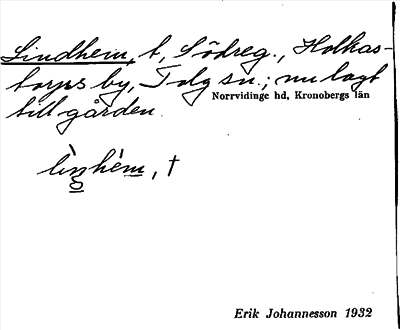 Lindhem, t, Södreg., Holkas-
torps by, Tolg sn.; nu lagt
Norrvidinge hd, Kronobergs län
till gården.
, †
Erik Johannesson 1932